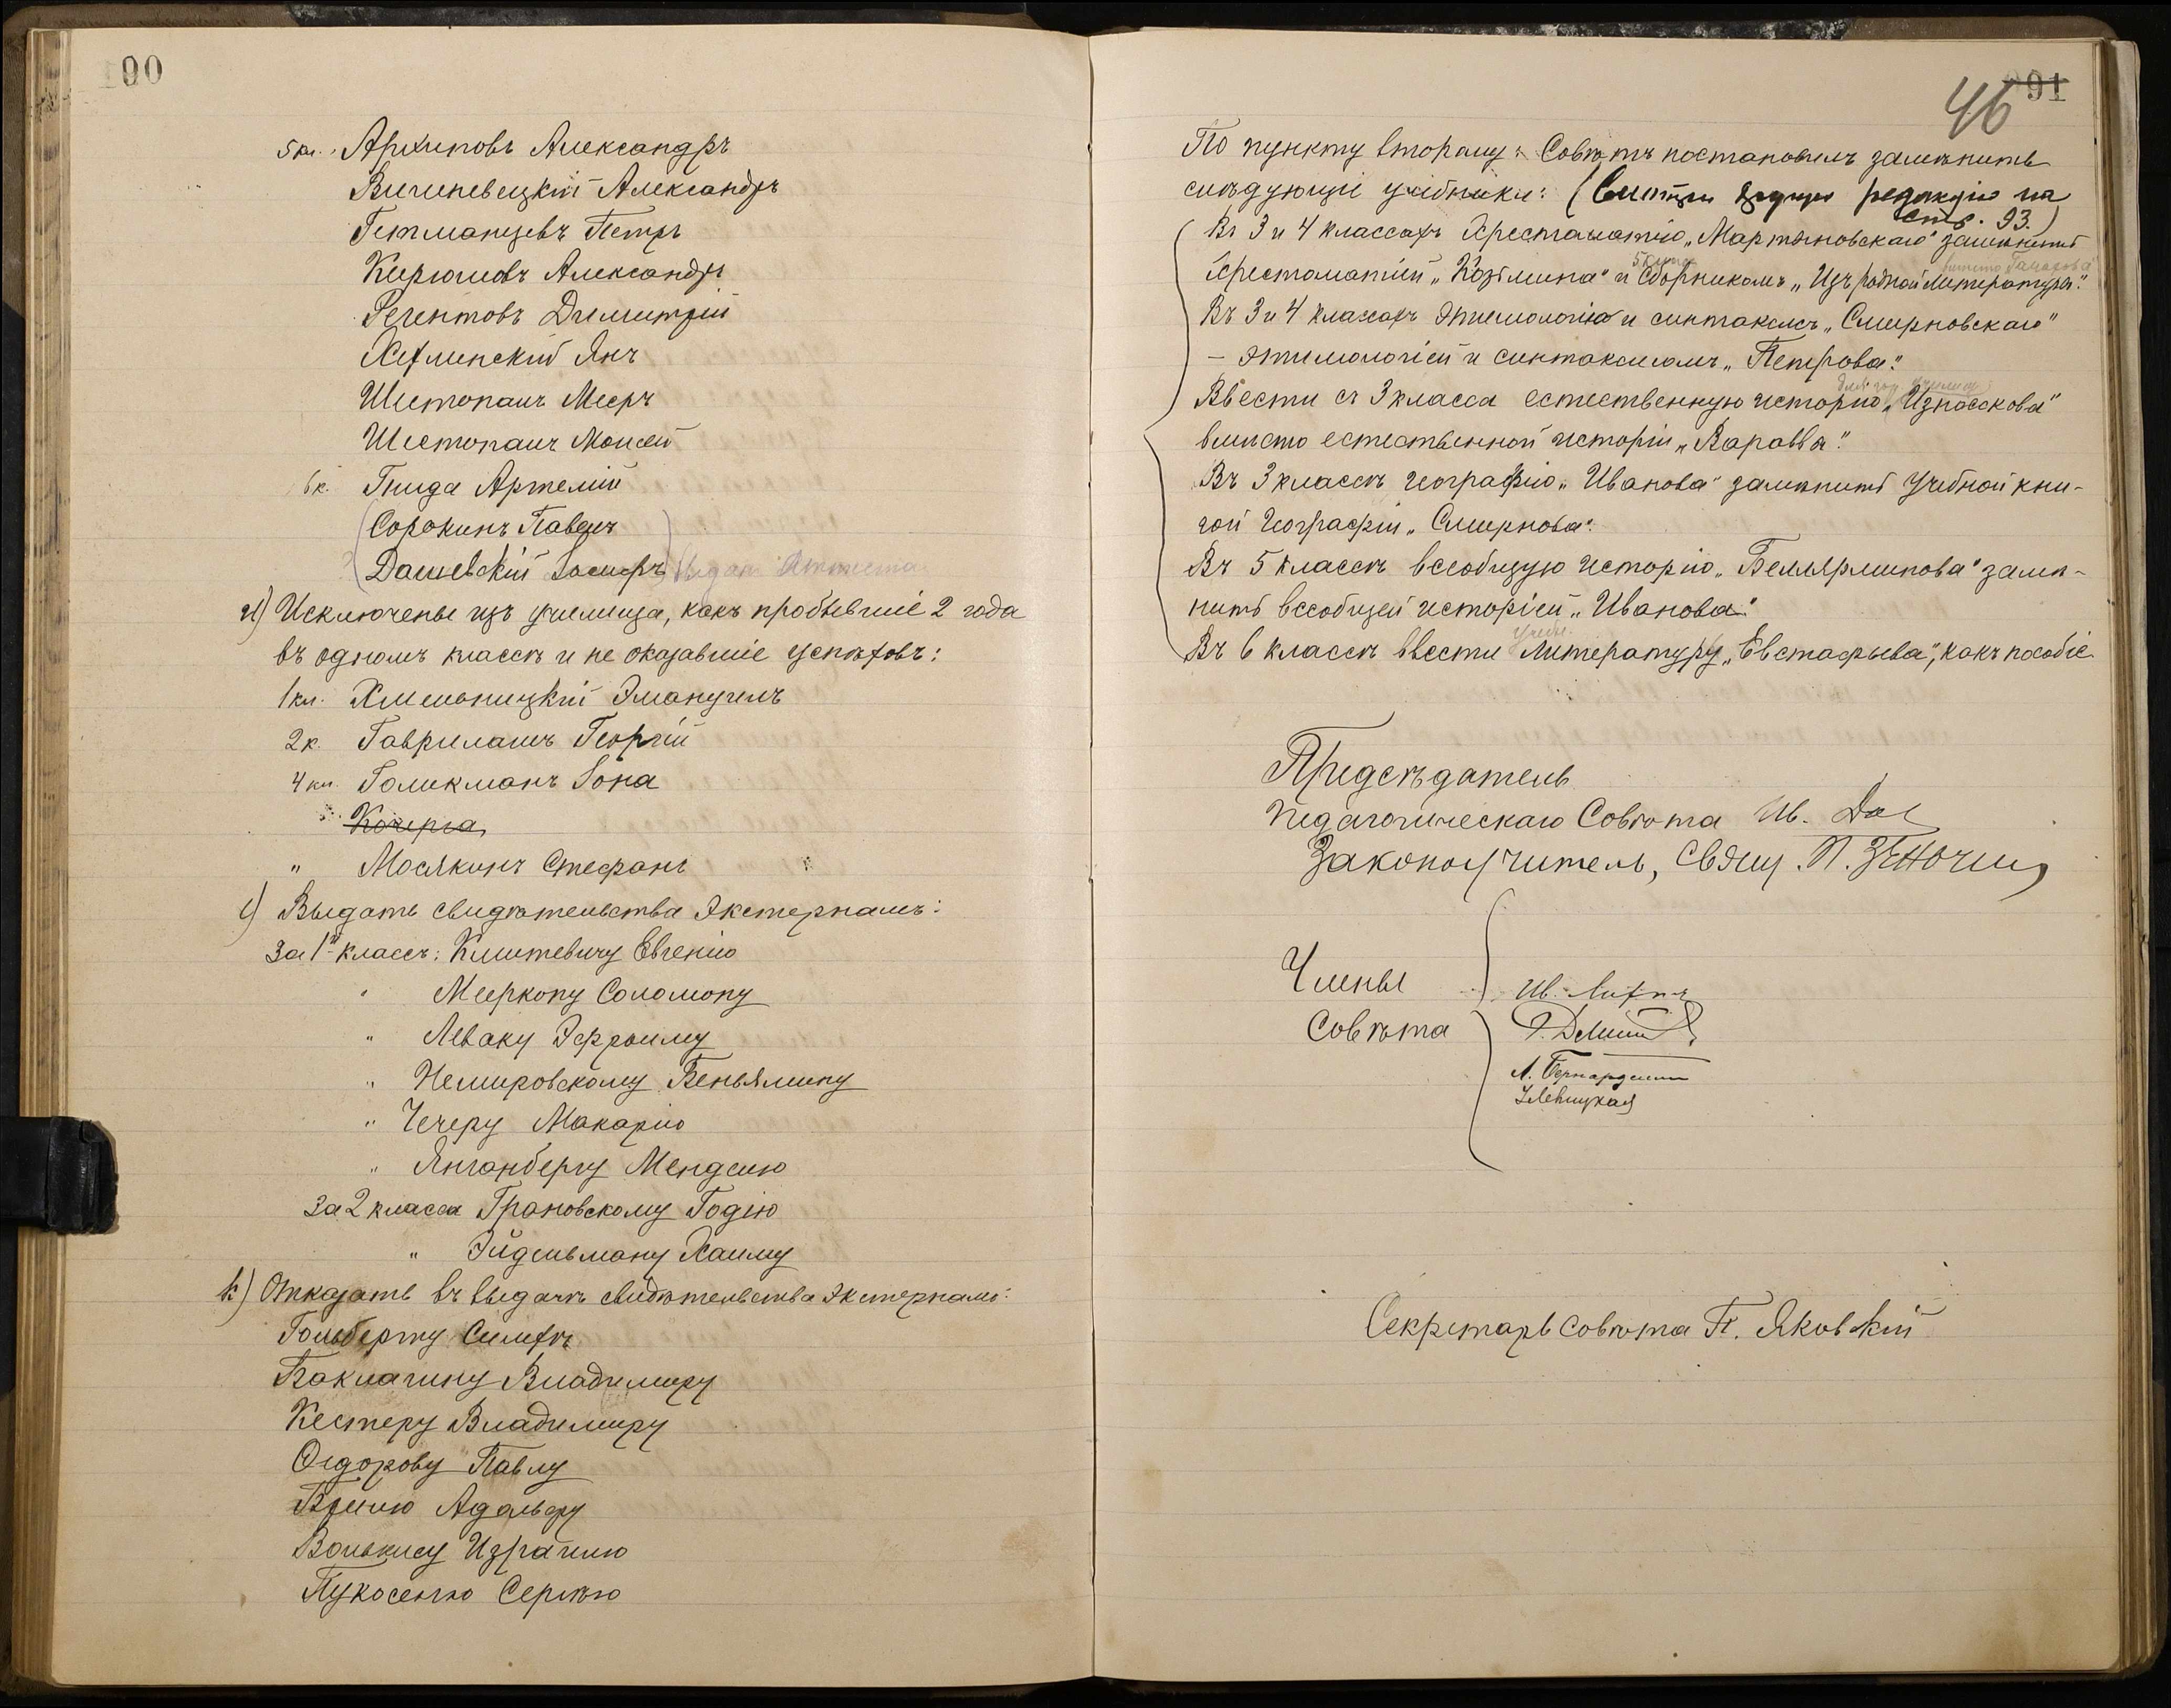 90
5 кл. Архиповъ Александръ
Вишневецкій Александръ
Гетманцевъ Петръ
Кирюшовъ Александръ
Регентовъ Димитрій
Хефлинскій Янъ
Шестопалъ Мееръ
Шестопалъ Моисей
6 к. Гнида Артемій
(Сорокинъ Павелъ)
Дашевскій Іосифъ
и) Исключены изъ училища, какъ пробывшіе 2 года
въ одномъ классѣ и не оказавшіе успѣховъ:
1 кл. Хмельницкій Эмануилъ
2 к. Гаврилашъ Георгій
4 кл. Голикманъ Іона
Кочерга
" Мосякинъ Стефанъ
і) Выдать свидѣтельства экстернамъ:
За 1й классъ: Климтевичу Евгенію
" Мееркопу Соломону
" Леваку Эфроиму
" Немировскому Беньямину
" Чечеру Макарію
" Янганбергу Менделю
За 2 класса Грановскому Годію
" Эйдельману Хаиму
к) Отказать въ выдачѣ свидѣтельства экстернамъ:
Гольберту Симхѣ
Баклагину Владимиру
Кестеру Владимиру
Сидорову Павлу
Брилю Адольфу
Волькису Израилю
Пукосенко Сергѣю
91
46
По пункту второму: Совѣтъ постановилъ замѣнить
слѣдующіе учебники: (Смотри другую редакцію на
стр. 93.)
Въ 3 и 4 классахъ Хрестоматію „Мартыновскаго" замѣнить
вместо Галахова
Хрестоматіей „Козьмина" и Сборникомъ „Изъ родной литературы".
Въ 3 и 4 классахъ этимологію и синтаксисъ „Смирновскаго"
– этимологіей и синтаксисомъ „Петрова".
для гор. училищ
Ввести съ 3 класса естественную исторію „Износкова"
вмѣсто естественной исторіи „Вараввы".
Въ 3 классѣ географію „Иванова" замѣнить Учебной кни-
гой Географіи „Смирнова".
Въ 5 классѣ всеобщую исторію „Беллярминова" замѣ-
нить всеобщей исторіей „Иванова".
Въ 6 классѣ ввести Литературу „Евстафьева", какъ пособіе.
Предсѣдатель
Педагогическаго Совѣта Ив.
Законоучитель, Свящ. П.
Члены
Совѣта
Ив.
А. Бернардели
Левицкая
Секретарь совѣта П. Яковскій